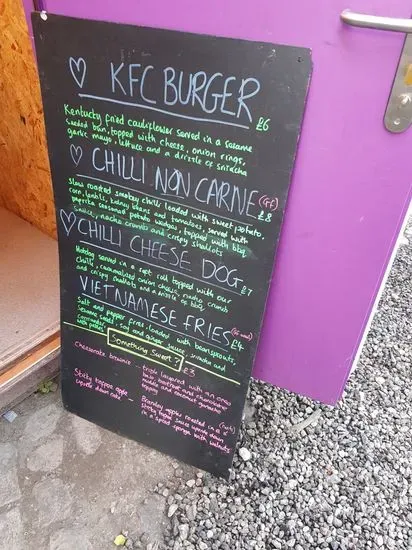 KFC BURGER
Kentucky fried cauliflower served in a sesame £6
seeded bun, topped with cheese, onion rings,
garlic mayo, lettuce and a drizzle of sriracha
CHILLI NON CARNE (GF)
Slow roasted smokey chilli loaded with sweet potato, £8
corn, lentils, kidney beans and tomatoes, served with
paprika seasoned potato wedges, topped with bbq
sauce, nacho crumb and crispy shallots
CHILLI CHEESE DOG
Hotdog served in a soft roll topped with our £7
chilli, caramalised onion, cheese, nacho crumb
and crispy shallots and a drizzle of bbq
VIETNAMESE FRIES
Salt and pepper fries loaded with beansprouts, £4
Sesame seeds, soy and ginger sauce, sriracha and
Something Sweet?
£3
Cheesecake brownie - triple layered with an oreo
base, brownie and cheesecake
middle and coconut ganache
topping
Sticky toffee apple - Bramley apples roasted in a
upside down cake sticky toffee sauce upside down
in a spiced sponge with walnuts